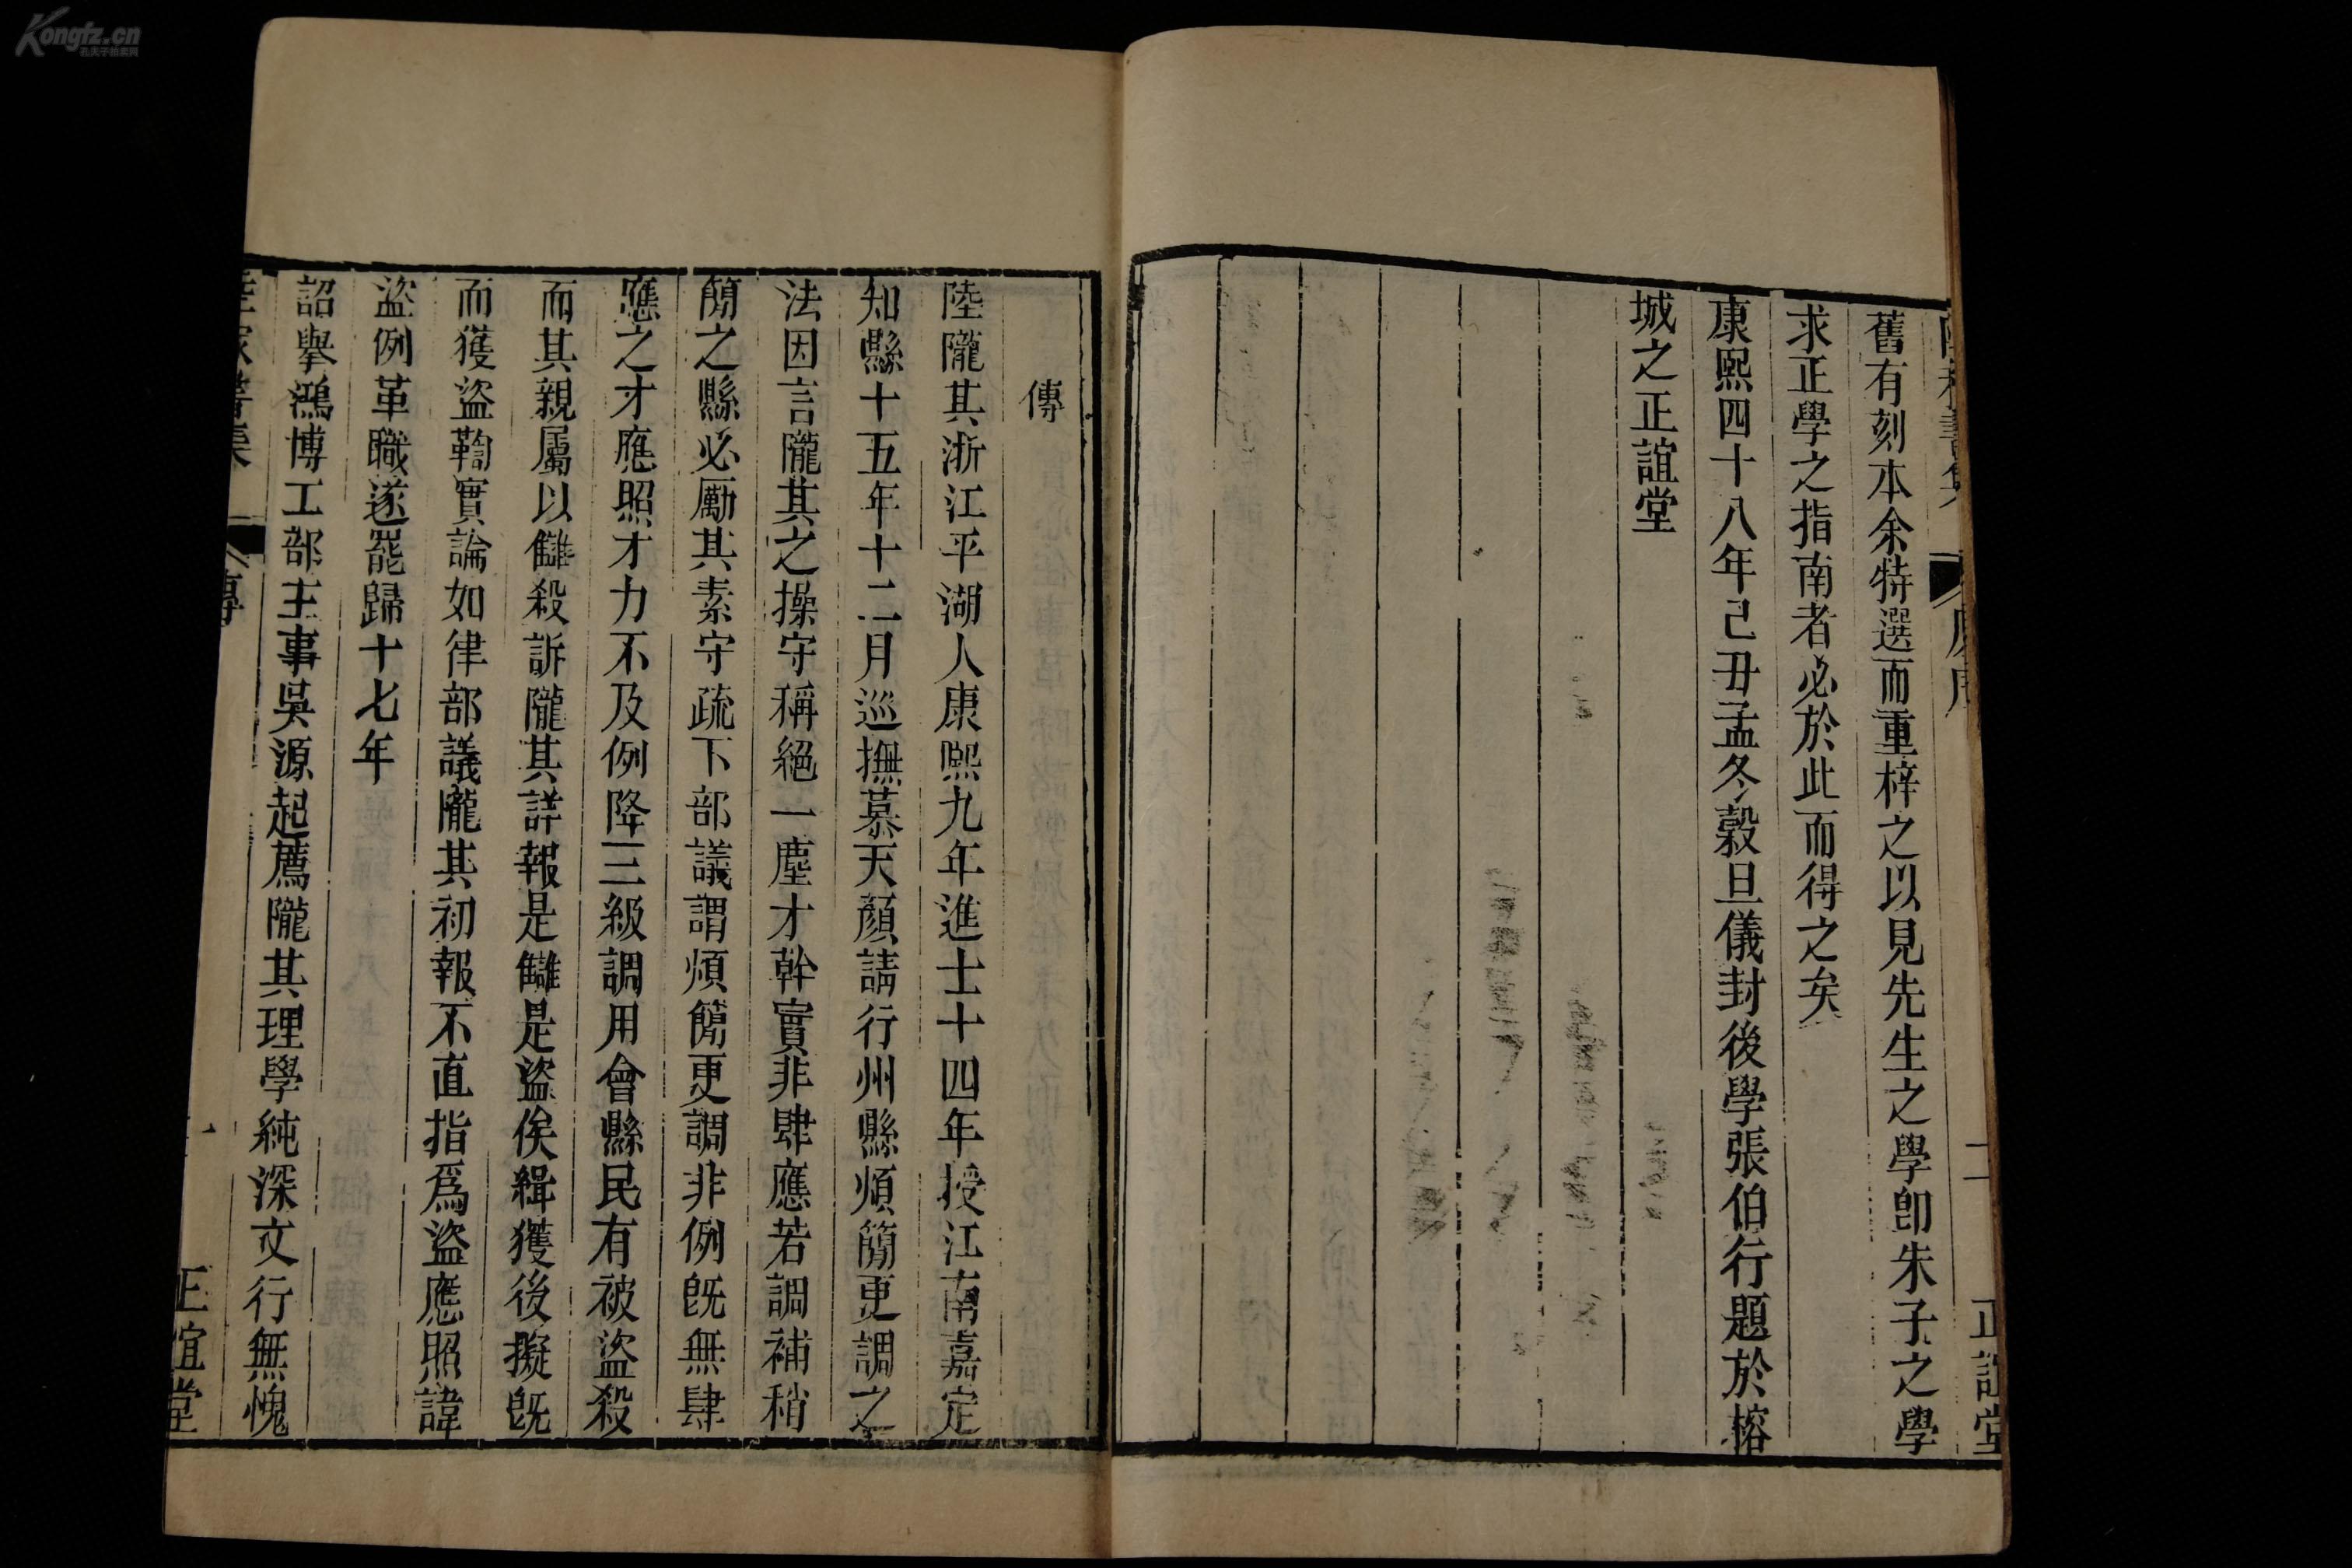 舊有刻本余特選而重梓之以見先生之學卽朱子之學
求正學之指南者必於此而得之矣
康熙四十八年己丑孟冬穀旦儀封後學張伯行題於榕
城之正誼堂
二
正誼堂
傳
陸隴其浙江平湖人康熙九年進士十四年授江南嘉定
知縣十五年十二月巡撫慕天顏請行州縣煩簡更調之
法因言隴其之操守稱絕一塵才幹實非肆應若調補稍
簡之縣必勵其素守疏下部議謂煩簡更調非例旣無肆
應之才應照才力不及例降三級調用會縣民有被盜殺
而其親屬以讎殺訴隴其詳報是讎是盜俟緝獲後擬旣
而獲盜鞫實論如律部議隴其初報不直指爲盜應照諱
盜例革職遂罷歸十七年
詔舉鴻博工部主事吳源起薦隴其理學純深文行無愧
傳
一
正誼堂
Kongfz.cn
孔夫子拍卖网